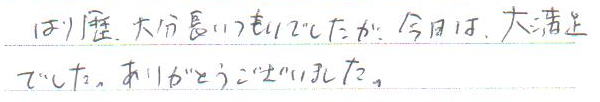 はり歴、大分長いつもりでしたが、今日は、大満足
でした。ありがとうございました。